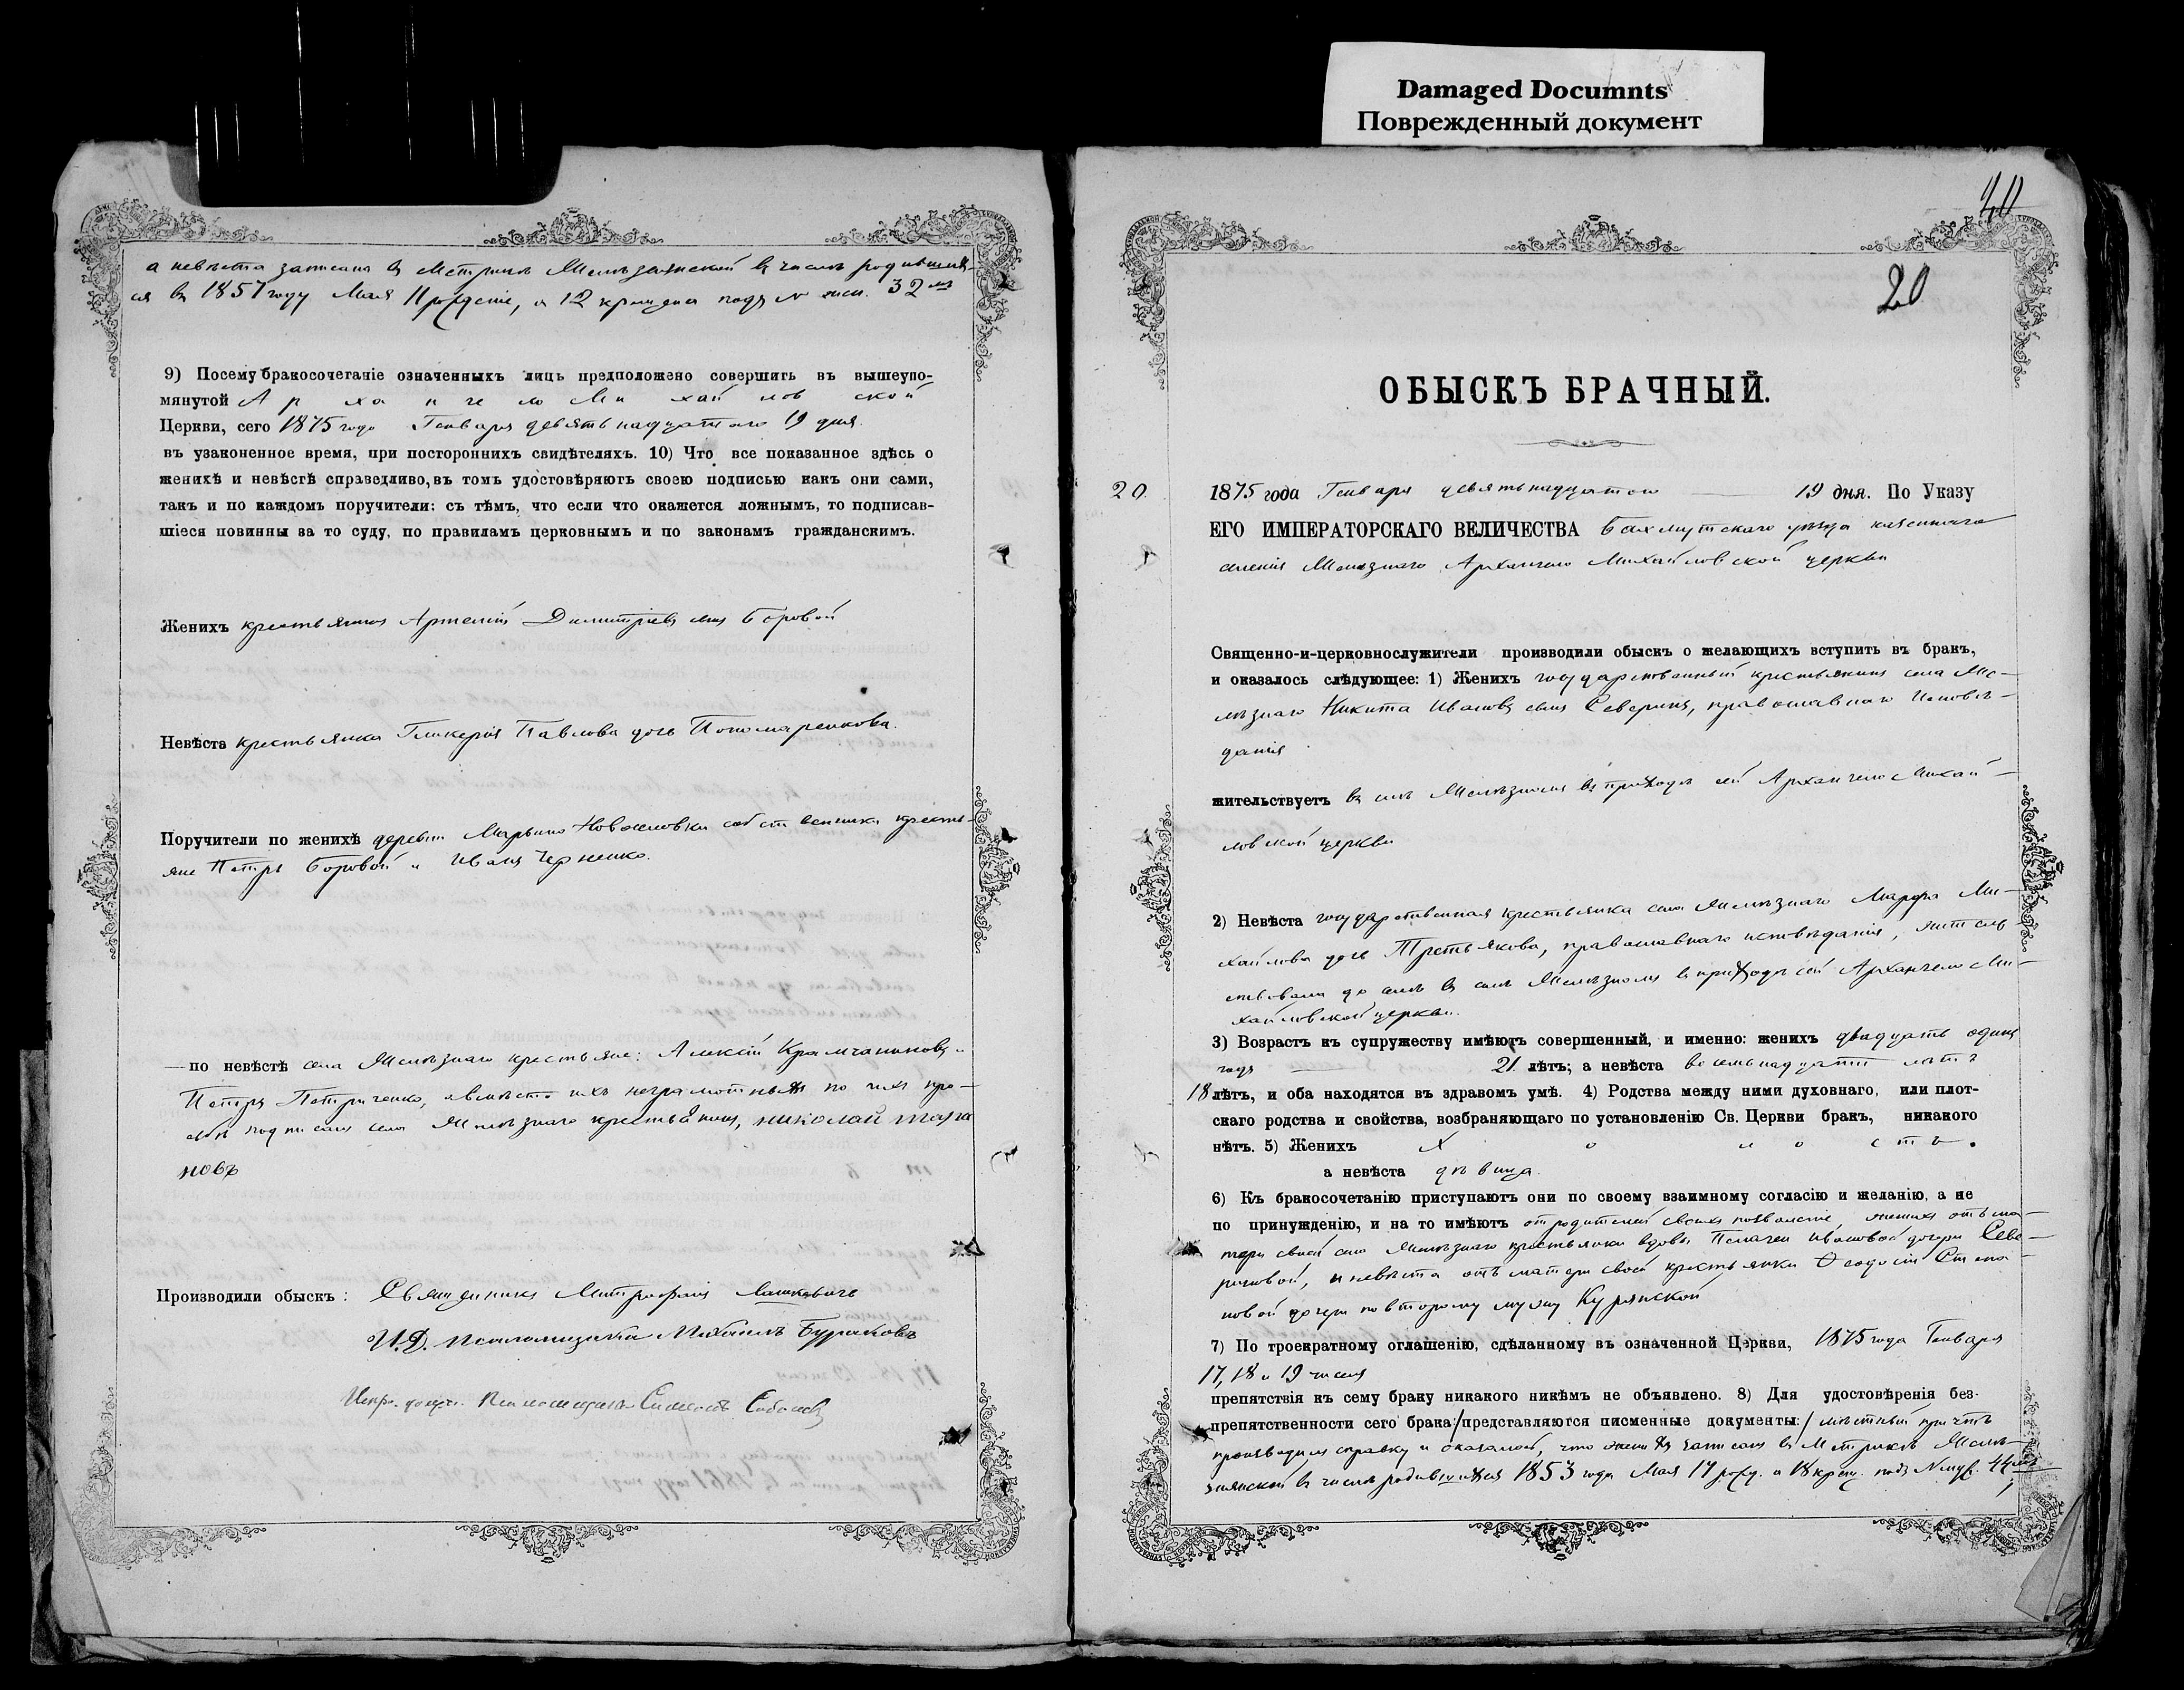 Damaged Documnts
Поврежденный документ
а невѣста записана въ Метрикѣ Желѣзянской въ числѣ родивших-
ся въ 1857 году Мая 11 рождение, а 12 крещена подъ № жен. 32мъ
9) Посему бракосочетаніе означенныхъ лицъ предположено совершить въ вышеупо-
мянутой Архангело Михайловской
Церкви, сего 1875 года Генваря девятьнадцатаго 19 дня.
въ узаконенное время, при постороннихъ свидѣтеляхъ. 10) Что все показанное здѣсь о
женихѣ и невѣстѣ справедливо, въ томъ удостовѣряютъ своею подписью какъ они сами,
такъ и по каждомъ поручители: съ тѣмъ, что если что окажется ложнымъ, то подписав-
шіеся повинны за то суду, по правиламъ церковнымъ и по законамъ гражданскимъ.
Женихъ крестьянинъ Артемій Димитріевъ сынъ Боровой
Невѣста крестьянка Гликерія Павлова дочь Пономаренкова.
Поручители по женихѣ деревни Марьино Новоселовки собственники кресть-
яне Петръ Боровой и Иванъ Черненко.
— по невѣстѣ села Желѣзнаго крестьяне: Алексій Крамчаниновъ и
Петръ Петриченко, а вмѣсто ихъ неграмотныхъ по ихъ про-
сьбѣ подписалъ села Желѣзнаго крестьянинъ, николай
новъ
Производили обыскъ: Священникъ Митрофанъ Лашкевичъ
И.Д. псаломщика Михаилъ Бураковъ
Испр. должн. Псаломщика Симеонъ
40
20
ОБЫСКЪ БРАЧНЫЙ.
20. 1875 года Генваря девятьнадцатаго 19 дня. По Указу
ЕГО ИМПЕРАТОРСКАГО ВЕЛИЧЕСТВА Бахмутскаго уѣзда казеннаго
селенія Желѣзнаго Архангело Михайловской церкви
Священно-и-церковнослужители производили обыскъ о желающихъ вступить въ бракъ,
и оказалось слѣдующее: 1) Женихъ государственный крестьянинъ села Же-
лѣзнаго Никита Ивановъ сынъ Северинъ, православнаго исповѣ-
данія
жительствуетъ въ селѣ Желѣзномъ въ приходѣ сей Архангело Михай-
ловской церкви
2) Невѣста государственная крестьянка села Желѣзнаго Марфа Ми-
хайлова дочь Третьякова, православнаго исповѣданія, житель-
ствовала до селѣ въ селѣ Желѣзномъ въ приходѣ сей Архангело Ми-
хайловской церкви.
3) Возрастъ къ супружеству имѣютъ совершенный, и именно: женихъ двадцать одинъ
годъ 21 лѣтъ; а невѣста восемьнадцать лѣтъ
18 лѣтъ, и оба находятся въ здравомъ умѣ. 4) Родства между ними духовнаго, или плот-
скаго родства и свойства, возбраняющаго по установленію Св. Церкви бракъ, никакого
нѣтъ. 5) Женихъ Холостъ.
а невѣста дѣвица.
6) Къ бракосочетанію приступаютъ они по своему взаимному согласію и желанію, а не
по принужденію, и на то имѣютъ отъ родителей своихъ позволеніе, женихъ отъ ма-
тери своей села Желѣзнаго крестьянки вдовы Пелагеи Ивановой дочери Севе-
риновой, а невѣста отъ матери своей крестьянки Ѳеодосіи Степа-
новой дочери по второму мужу Курянской
7) По троекратному оглашенію, сдѣланному въ означенной Церкви, 1875 года Генваря
17, 18 и 19 числъ
препятствія къ сему браку никакого никѣмъ не объявлено. 8) Для удостовѣренія без-
препятственности сего брака:/представляются писменные документы:/ мѣстный причтъ
производилъ справку и оказалось, что женихъ записанъ въ Метрикѣ Желѣ-
зянской въ числѣ родившихся 1853 года Мая 17 рожд. а 18 крещ. подъ № муж. 44мъ